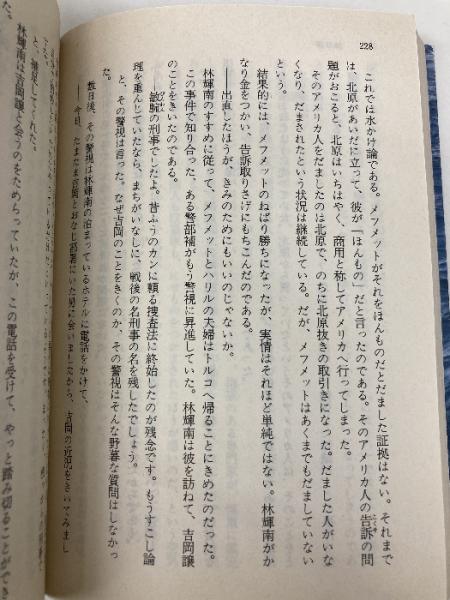 228
これでは水かけ論である。メフメットがそれをほんものだとだました証拠はない。それまで
は、北原があいだに立って、彼が「ほんもの」だと言ったのである。そのアメリカ人の告訴の問
題がおこると、北原はいちはやく、商用と称してアメリカへ行ってしまった。
そのアメリカ人をだましたのは北原で、のちに北原抜きの取引きになった。だました人がいな
くなり、だまされたという状況は継続している。だが、メフメットはあくまでもだましていない
という。
結果的には、メフメットのねばり勝ちになったが、実情はそれほど単純ではない。林輝南がか
なり金をつかい、告訴取りさげにもちこんだのである。
――出直したほうが、きみのためにもいいのじゃないか。
林輝南のすすめに従って、メフメットとハリルの夫婦はトルコへ帰ることにきめたのだった。
この事件で知り合った、ある警部補がもう警視に昇進していた。林輝南は彼を訪ねて、吉岡譲
のことをきいたのである。
――敏腕の刑事でしたよ。昔ふうのカンに頼る捜査法に終始したのが残念です。もうすこし論
理を重んじていたなら、まちがいなしに、戦後の名刑事の名を残したでしょう。
と、その警視は言った。なぜ吉岡のことをきくのか、その警視はそんな野暮な質問はしなかっ
た。
数日後、その警視は林輝南の泊まっているホテルに電話をかけて、
――今日、たまたま吉岡とおなじ部署にいた男に会いましたから、吉岡の近況をきいてみまし
と、補足してくれた。
林輝南は吉岡譲と会うのをためらっていたが、この電話を受けて、やっと踏み切ることができ
た。